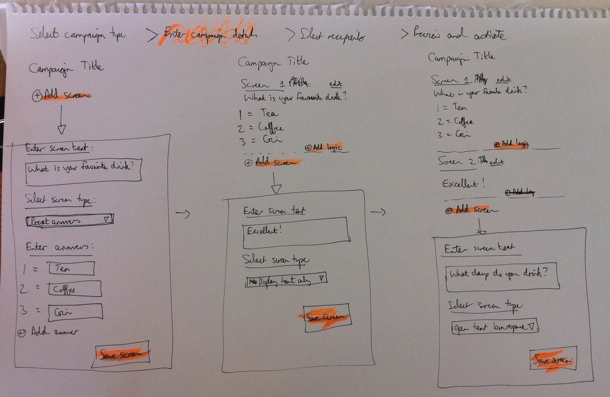 Select campaign type > Enter campaign details > Select recipients > Preview and activate
Campaign Title
+ Add screen
Enter screen text:
What is your favourite drink?
Select screen type:
Preset answers
Enter answers:
1 = Tea
2 = Coffee
3 = Coin
+ Add answer
Save screen
Campaign Title
Screen 1 edit
What is your favourite drink?
1 = Tea
2 = Coffee
3 = Coin
+ Add logic
+ Add screen
Enter screen text
Excellent!
Select screen type
Display text only
Save screen
Campaign Title
Screen 1 edit
What is your favourite drink?
1 = Tea
2 = Coffee
3 = Coin
+ Add logic
Screen 2 edit
Excellent!
+ Add screen
Enter screen text
What days do you drink?
Select screen type
Open text
Save screen